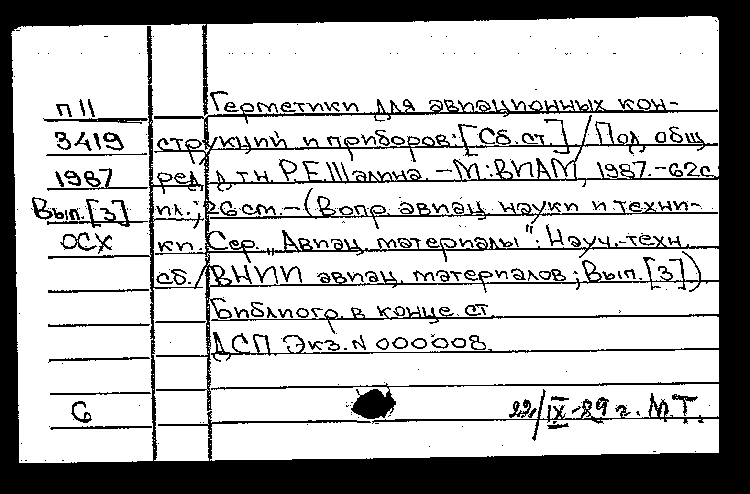 П 11 Герметики для авиационных кон-
3419 струкций и приборов: [Сб. ст.] / Под общ.
1987 ред. д.т.н. Р.Е.Шалина. - М.: ВИАМ, 1987. - 62с.
Вып.[3] ил.; 26 cm. - (Вопр. авиац. науки и техни-
ОСХ ки. Сер. „Авиац. материалы": Науч.-техн.
сб. / ВНИИ авиац. материалов; Вып. [3])
Библиогр. в конце ст.
ДСП. Экз. N 000008.
С 22/IX-89 г. М.Т.